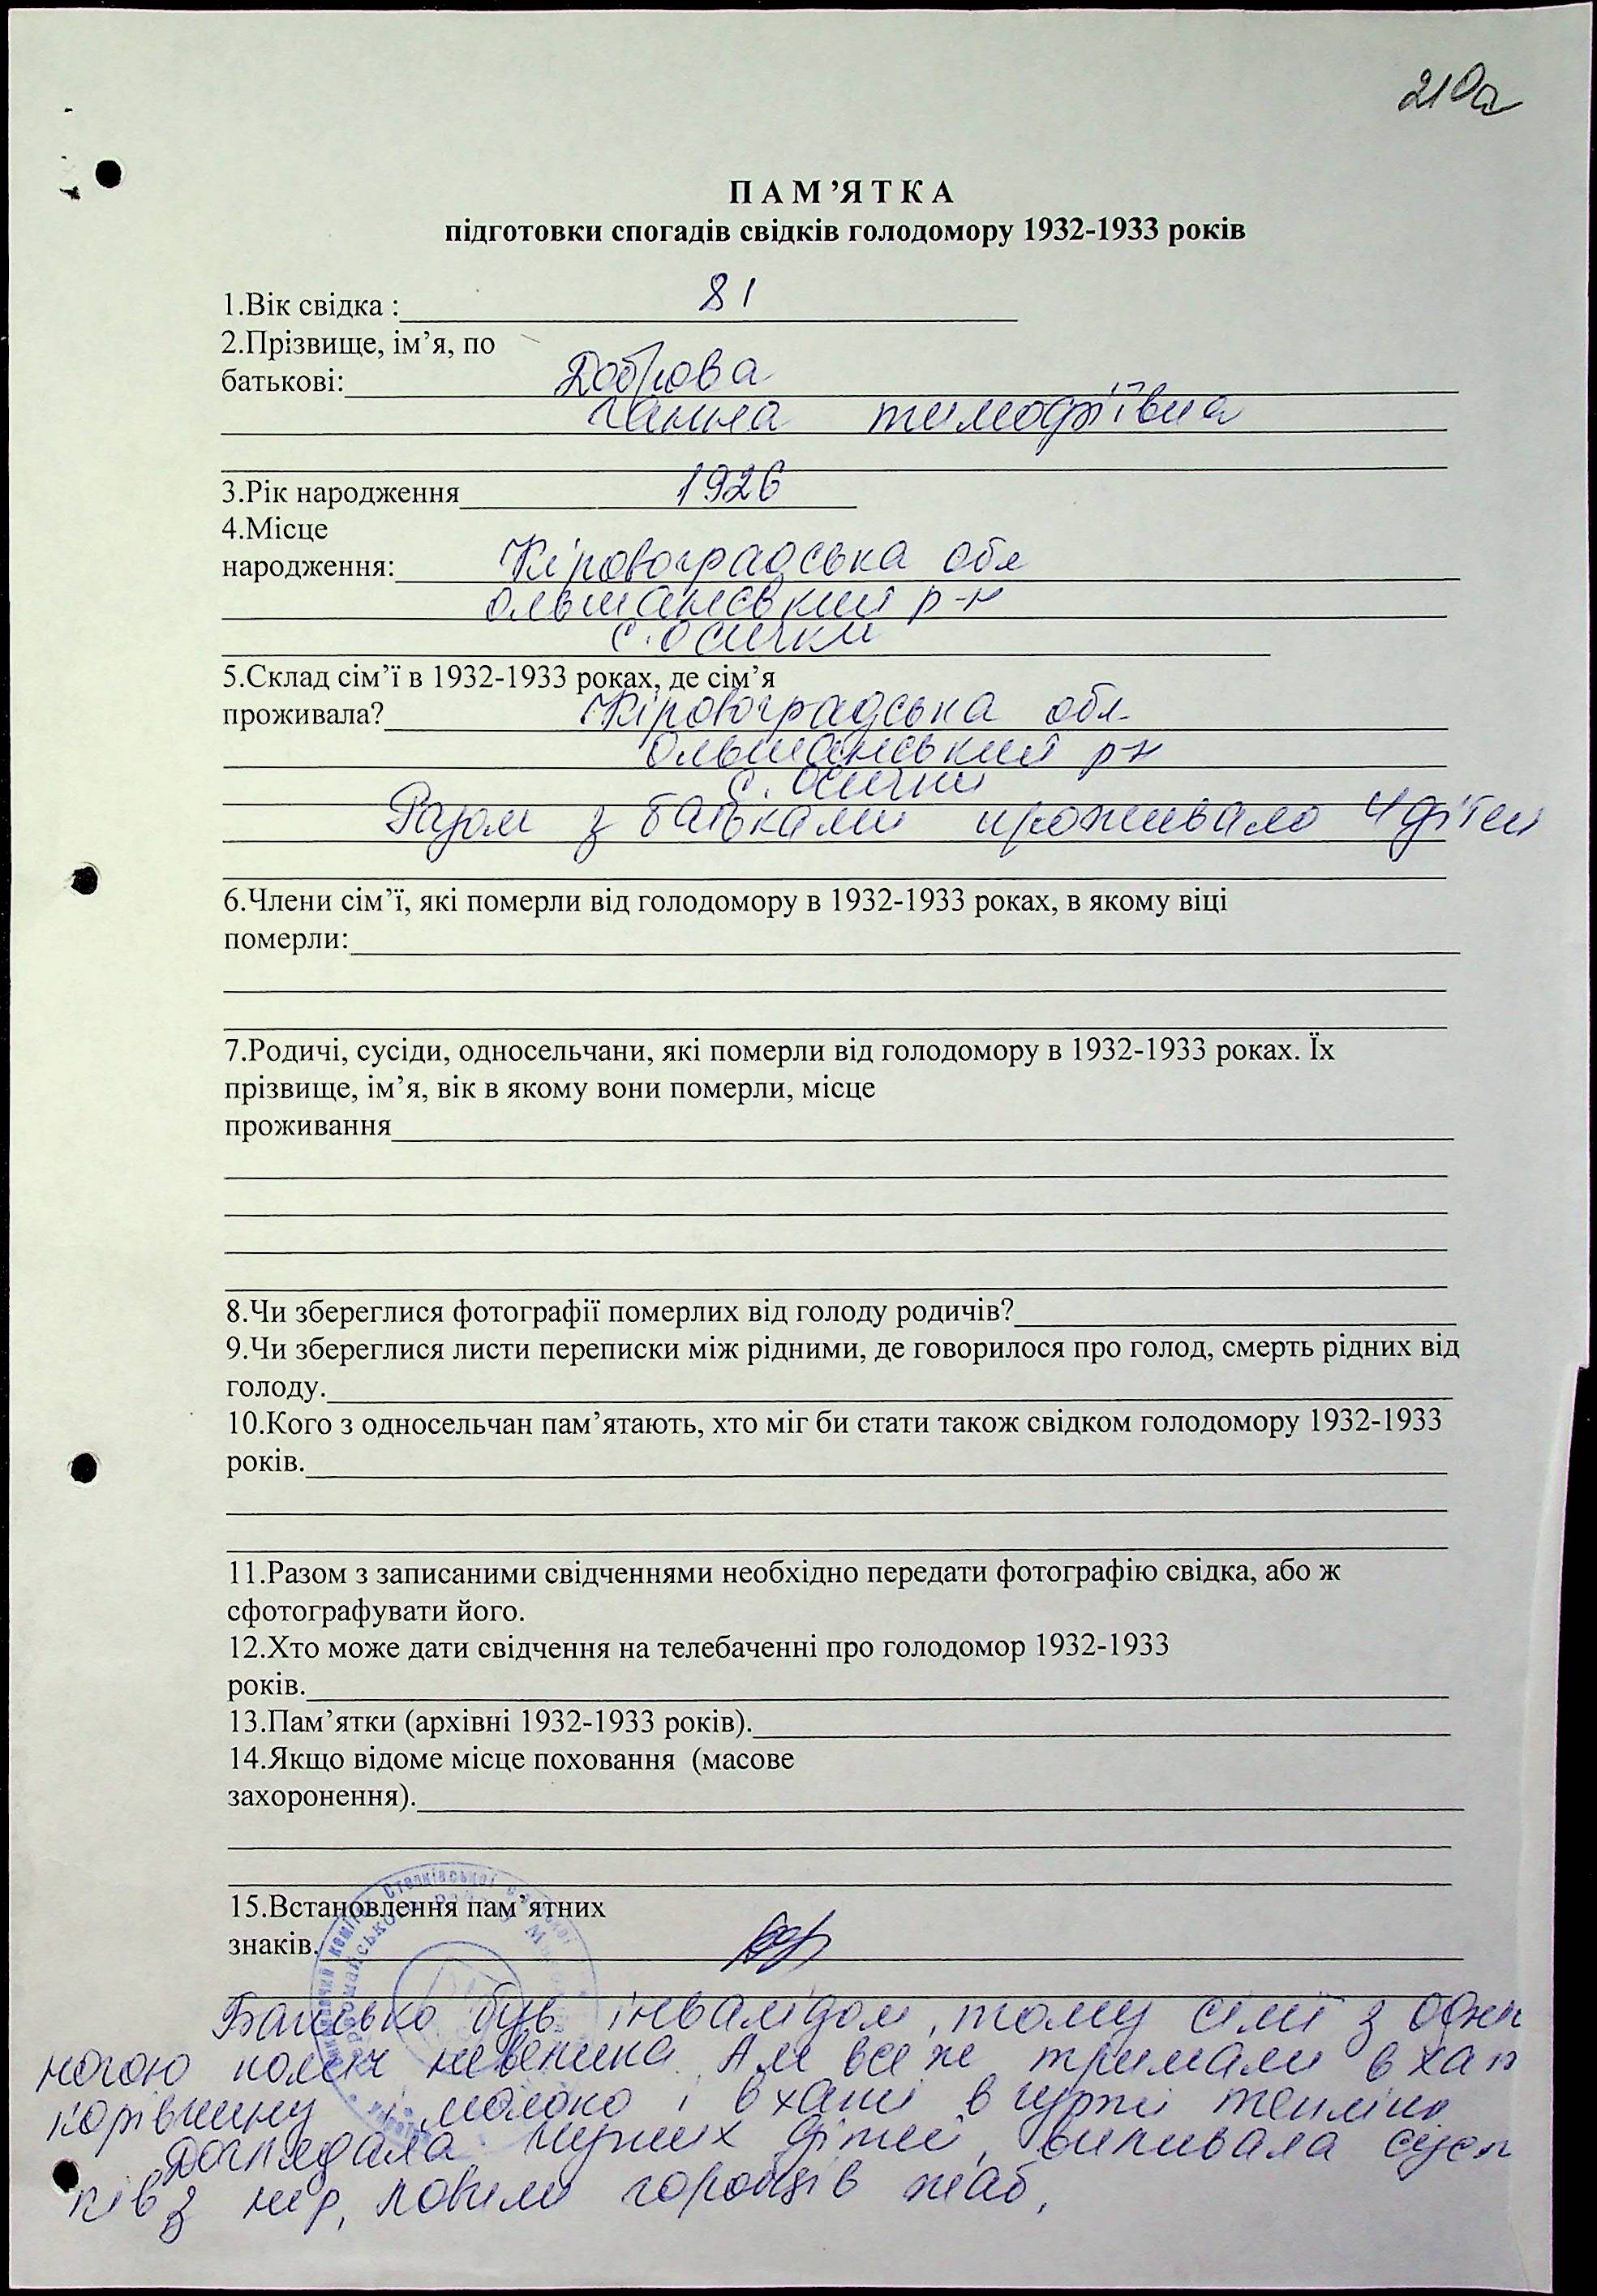 210а
ПАМ’ЯТКА
підготовки спогадів свідків голодомору 1932-1933 років
1.Вік свідка : 81
2.Прізвище, ім’я, по
батькові: Доброва
Ганна тимофіївна
3.Рік народження 1926
4.Місце
народження: Кіровоградська обл
ольшанський р-н
с. осички
5.Склад сім’ї в 1932-1933 роках, де сім’я
проживала? Кіровоградська обл.
ольшанський р-н
с. осички
Разом з батьками проживало 4 дітей
6.Члени сім’ї, які померли від голодомору в 1932-1933 роках, в якому віці
померли:
7.Родичі, сусіди, односельчани, які померли від голодомору в 1932-1933 роках. Їх
прізвище, ім’я, вік в якому вони померли, місце
проживання
8.Чи збереглися фотографії померлих від голоду родичів?
9.Чи збереглися листи переписки між рідними, де говорилося про голод, смерть рідних від
голоду.
10.Кого з односельчан пам’ятають, хто міг би стати також свідком голодомору 1932-1933
років.
11.Разом з записаними свідченнями необхідно передати фотографію свідка, або ж
сфотографувати його.
12.Хто може дати свідчення на телебаченні про голодомор 1932-1933
років.
13.Пам’ятки (архівні 1932-1933 років).
14.Якщо відоме місце поховання (масове
захоронення).
15.Встановлення пам’ятних
знаків.
Батько був інвалідом, тому сімї з одн
ногою Але все же тримали в ха
корівчину і молоко і в хаті в
Доглядала дітей, виливала
ків з нір, ловили горобців жаб,